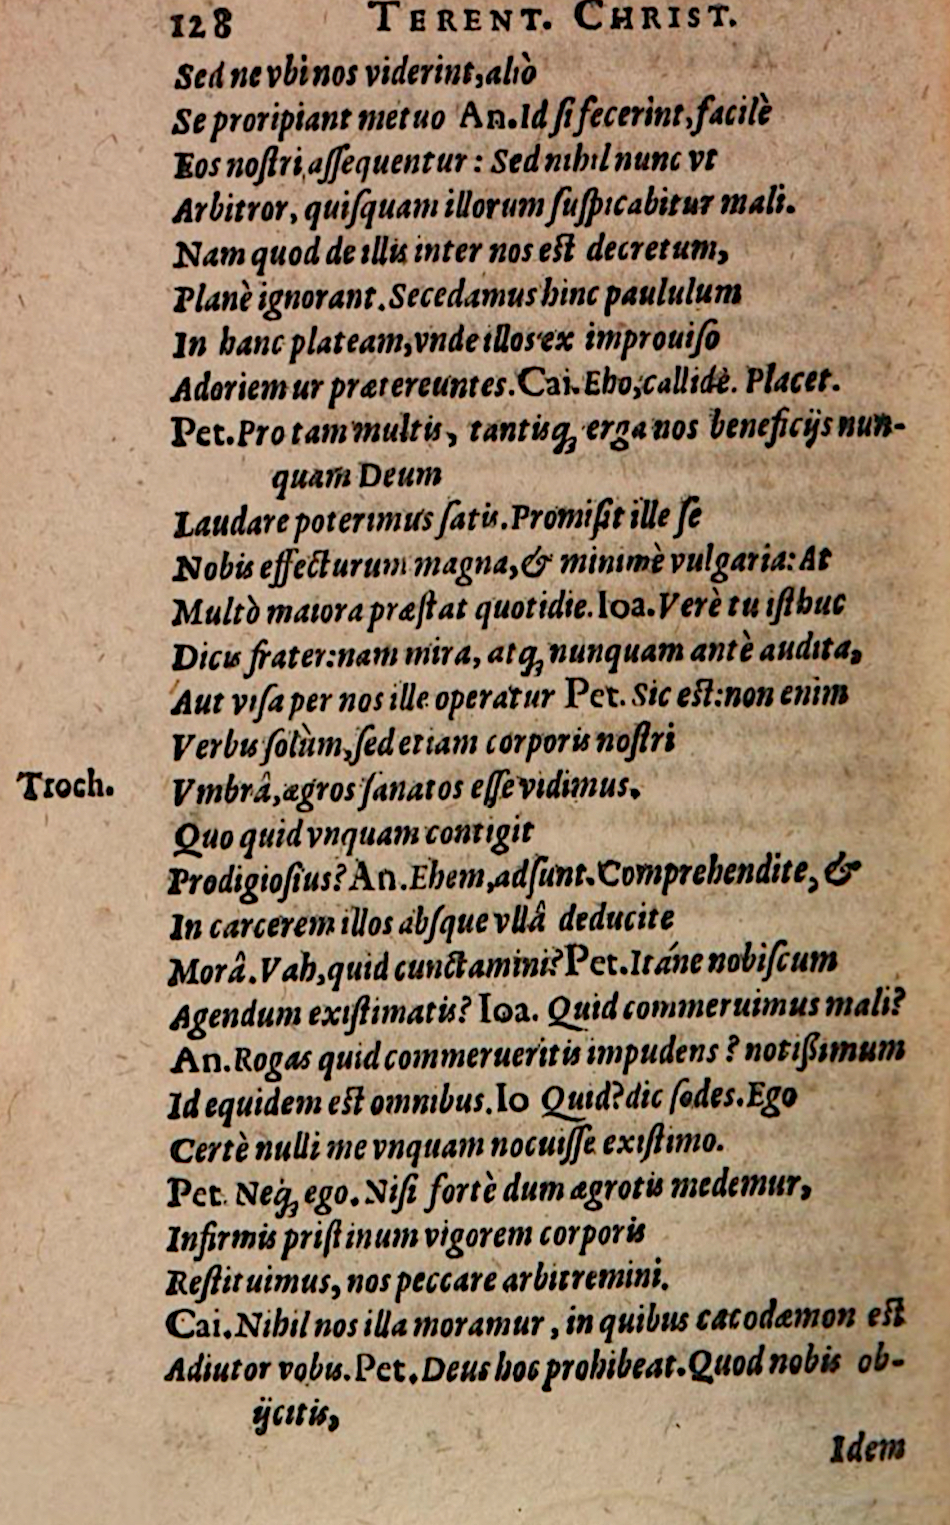 128 TERENT. CHRIST.
Sed ne vbi nos viderint, aliò
Se proripiant metuo An. Id ſi fecerint, facilè
Eos noſtri aſſequentur: Sed nihil nunc vt
Arbitror, quiſquam illorum ſuſpicabitur mali.
Nam quod de illis inter nos eſt decretum,
Planè ignorant. Secedamus hinc paululum
In hanc plateam, vnde illos ex improuiſo
Adoriemur prætereuntes. Cai. Eho, callidè. Placet.
Pet. Pro tam multis, tantisq; erga nos beneficijs nun-
quam Deum
Laudare poterimus ſatis. Promiſit ille ſe
Nobis effecturum magna, & minimè vulgaria: At
Multò maiora præſtat quotidie. Ioa. Verè tu iſthuc
Dicis frater: nam mira, atq; nunquam antè audita,
Aut viſa per nos ille operatur Pet. Sic eſt: non enim
Verbis ſolùm, ſed etiam corporis noſtri
Troch. Vmbrâ, ægros ſanatos eſſe vidimus.
Quo quid vnquam contigit
Prodigioſius? An. Ehem, adſunt. Comprehendite, &
In carcerem illos abſque vllâ deducite
Morâ. Vah, quid cunctamini? Pet. Itáne nobiſcum
Agendum exiſtimatis? Ioa. Quid commeruimus mali?
An. Rogas quid commerueritis impudens? notißimum
Id equidem eſt omnibus. Io Quid? dic ſodes. Ego
Certè nulli me vnquam nocuiſſe exiſtimo.
Pet. Neq; ego. Niſi fortè dum ægrotis medemur,
Infirmis priſtinum vigorem corporis
Reſtituimus, nos peccare arbitremini.
Cai. Nihil nos illa moramur, in quibus cacodæmon eſt
Adiutor vobis. Pet. Deus hoc prohibeat. Quod nobis ob-
ijcitis,
Idem